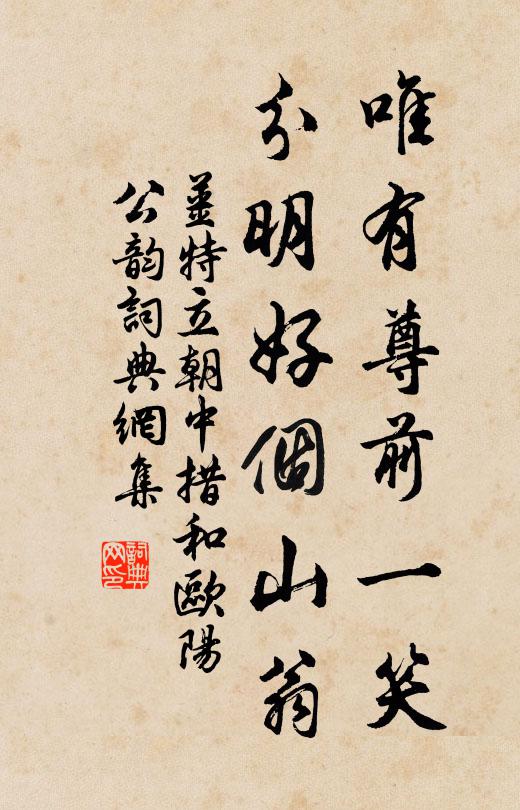 唯有尊前一笑
分明好個山翁
姜特立朝中措和歐陽
公韵詞典網集
詞典网印